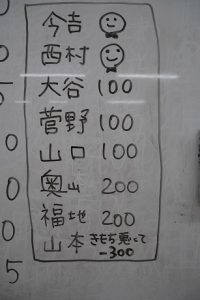 今吉
西村
大谷 100
菅野 100
山口 100
奥山 200
福地 200
山本 きもち悪くて
-300
0
5
0
0
0
5